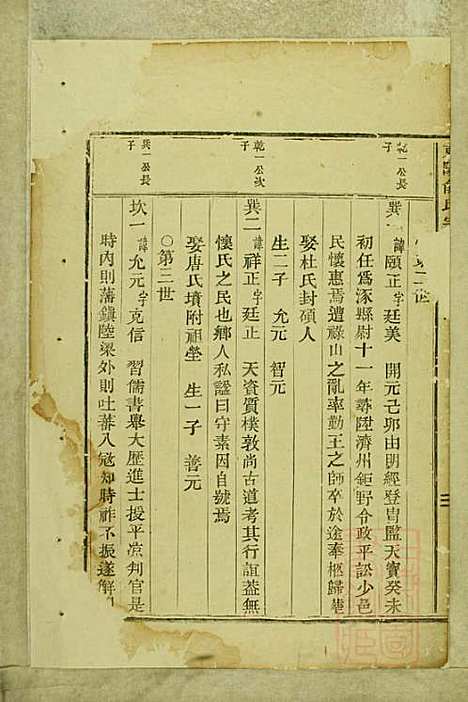 乾一公長
子
巽一 諱頤正 字廷美 開元己卯由明經登胄監天寶癸未
初任爲涿縣尉十一年尋陞濟州鉅野令政平訟少邑
民懷惠焉遭祿山之亂率勤王之師卒於途奉柩歸葬
娶杜氏封碩人
生二子 允元 智元
乾一公次
子
巽二 諱祥正 字廷止 天資質樸敦尚古道考其行誼葢無
懷氏之民也鄉人私諡曰守素因自號焉
娶唐氏墳附祖塋 生一子 善元
○第三世
巽一公長
子
坎一 諱允元 字克信 習儒書舉大歷進士授平凉判官是
時內則藩鎮陸梁外則吐蕃入寇知時祚不振遂解